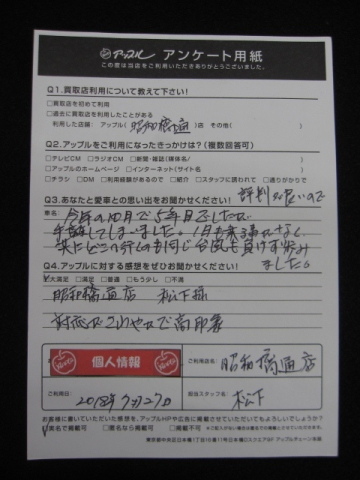 アップル アンケート用紙
この度は当店をご利用いただきありがとうございました。
Q1.買取店利用について教えて下さい!
□買取店を初めて利用
□過去に買取店を利用したことがある
利用した店舗: アップル( 昭和橋通 )店 その他(
Q2.アップルをご利用になったきっかけは?(複数回答可)
□テレビCM □ラジオCM □新聞・雑誌(媒体名/ )
□アップルのホームページ □インターネット(サイト名 )
□チラシ □DM □利用経験があるので □紹介 □スタッフに誘われて □通りがかりで
評判が良いので
Q3.あなたと愛車との思い出をお聞かせください!
車名
今年の10月で5年目でしたが
手離してしまいました。1月も
共にどこへ行くのも同じ台風も負けず歩み
ました。
Q4.アップルに対する感想をぜひお聞かせください!
大満足 □満足 □普通 □もう少し □不満
昭和橋通店 松下様
対応はさわやかで高印象
個人情報
ご利用店名/ 昭和橋通店
ご利用日/ 2018年7月27日
担当スタッフ名/ 松下
お客様に書いていただいた感想を、アップルHPや広告に掲載させていただいてもよろしいでしょうか?
実名で掲載可 □匿名なら掲載可 □掲載不可
東京都中央区日本橋1丁目15番11号日本橋2スクエア5F アップルチェーン本部